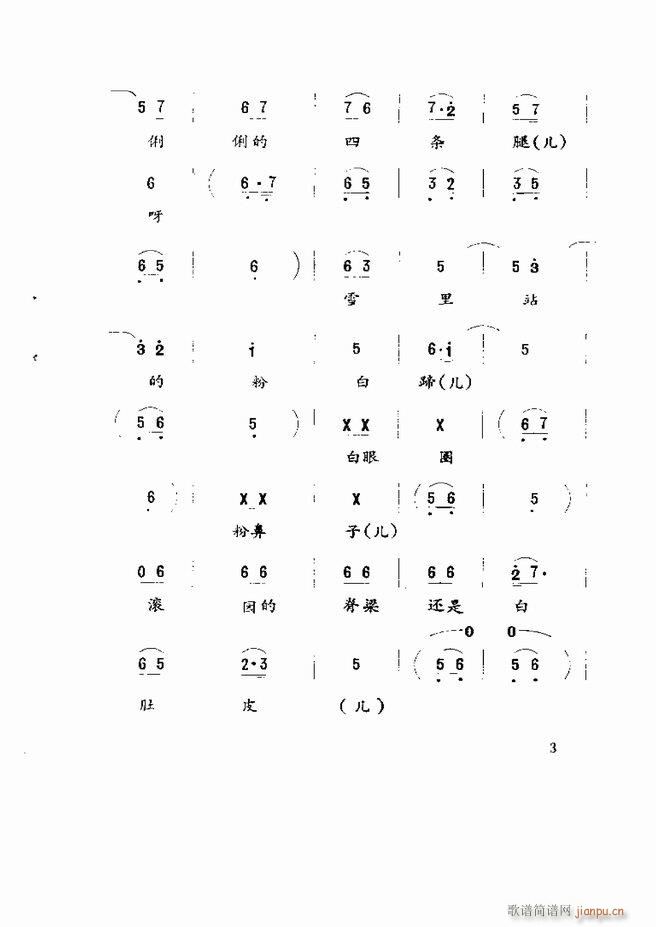 5 7 | 6 7 | 7 6 | 7·2 | 5 7
俐 俐的 四 条 腿(儿)
6 | (6·7 | 6 5 | 3 2 | 3 5
呀
6 5 | 6 ) | 6 3 | 5 | 5 3
雪 里 站
3 2 | i | 5 | 6·i | 5
的 粉 白 蹄(儿)
(5 6 | 5 ) | X X | X | (6 7
白眼 圈
6 ) | X X | X | (5 6 | 5 )
粉鼻 子(儿)
0 6 | 6 6 | 6 6 | 6 6 | 2 7·
滚 园的 脊梁 还是 白
0 0
6 5 | 2·3 | 5 | (5 6 | 5 6 )
肚 皮 (儿)
3
歌谱简谱网 jianpu.cn